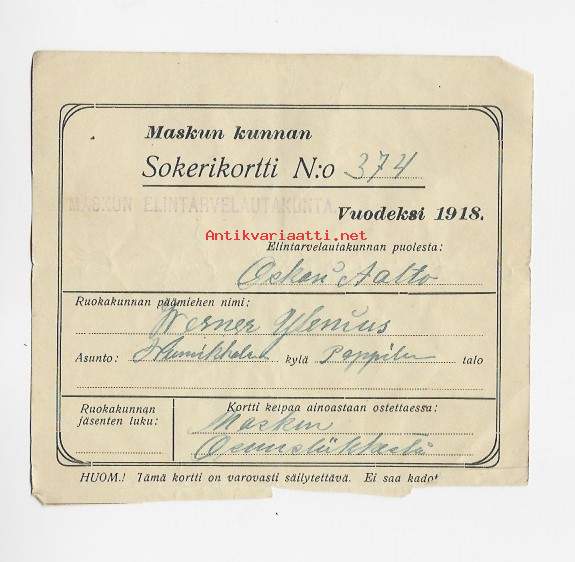 Maskun kunnan
Sokerikortti N:o 374
MASKUN ELINTARVELAUTAKUNTA.
Vuodeksi 1918.
Antikvariaatti.net
Elintarvelautakunnan puolesta:
Oskari Aalto
Ruokakunnan päämiehen nimi:
Werner Ylenius
Asunto: kylä Pappila talo
Ruokakunnan jäsenten luku:
Kortti kelpaa ainoastaan ostettaessa:
Maskun
Osuusliikkestä
HUOM.! Tämä kortti on varovasti säilytettävä. Ei saa kadot